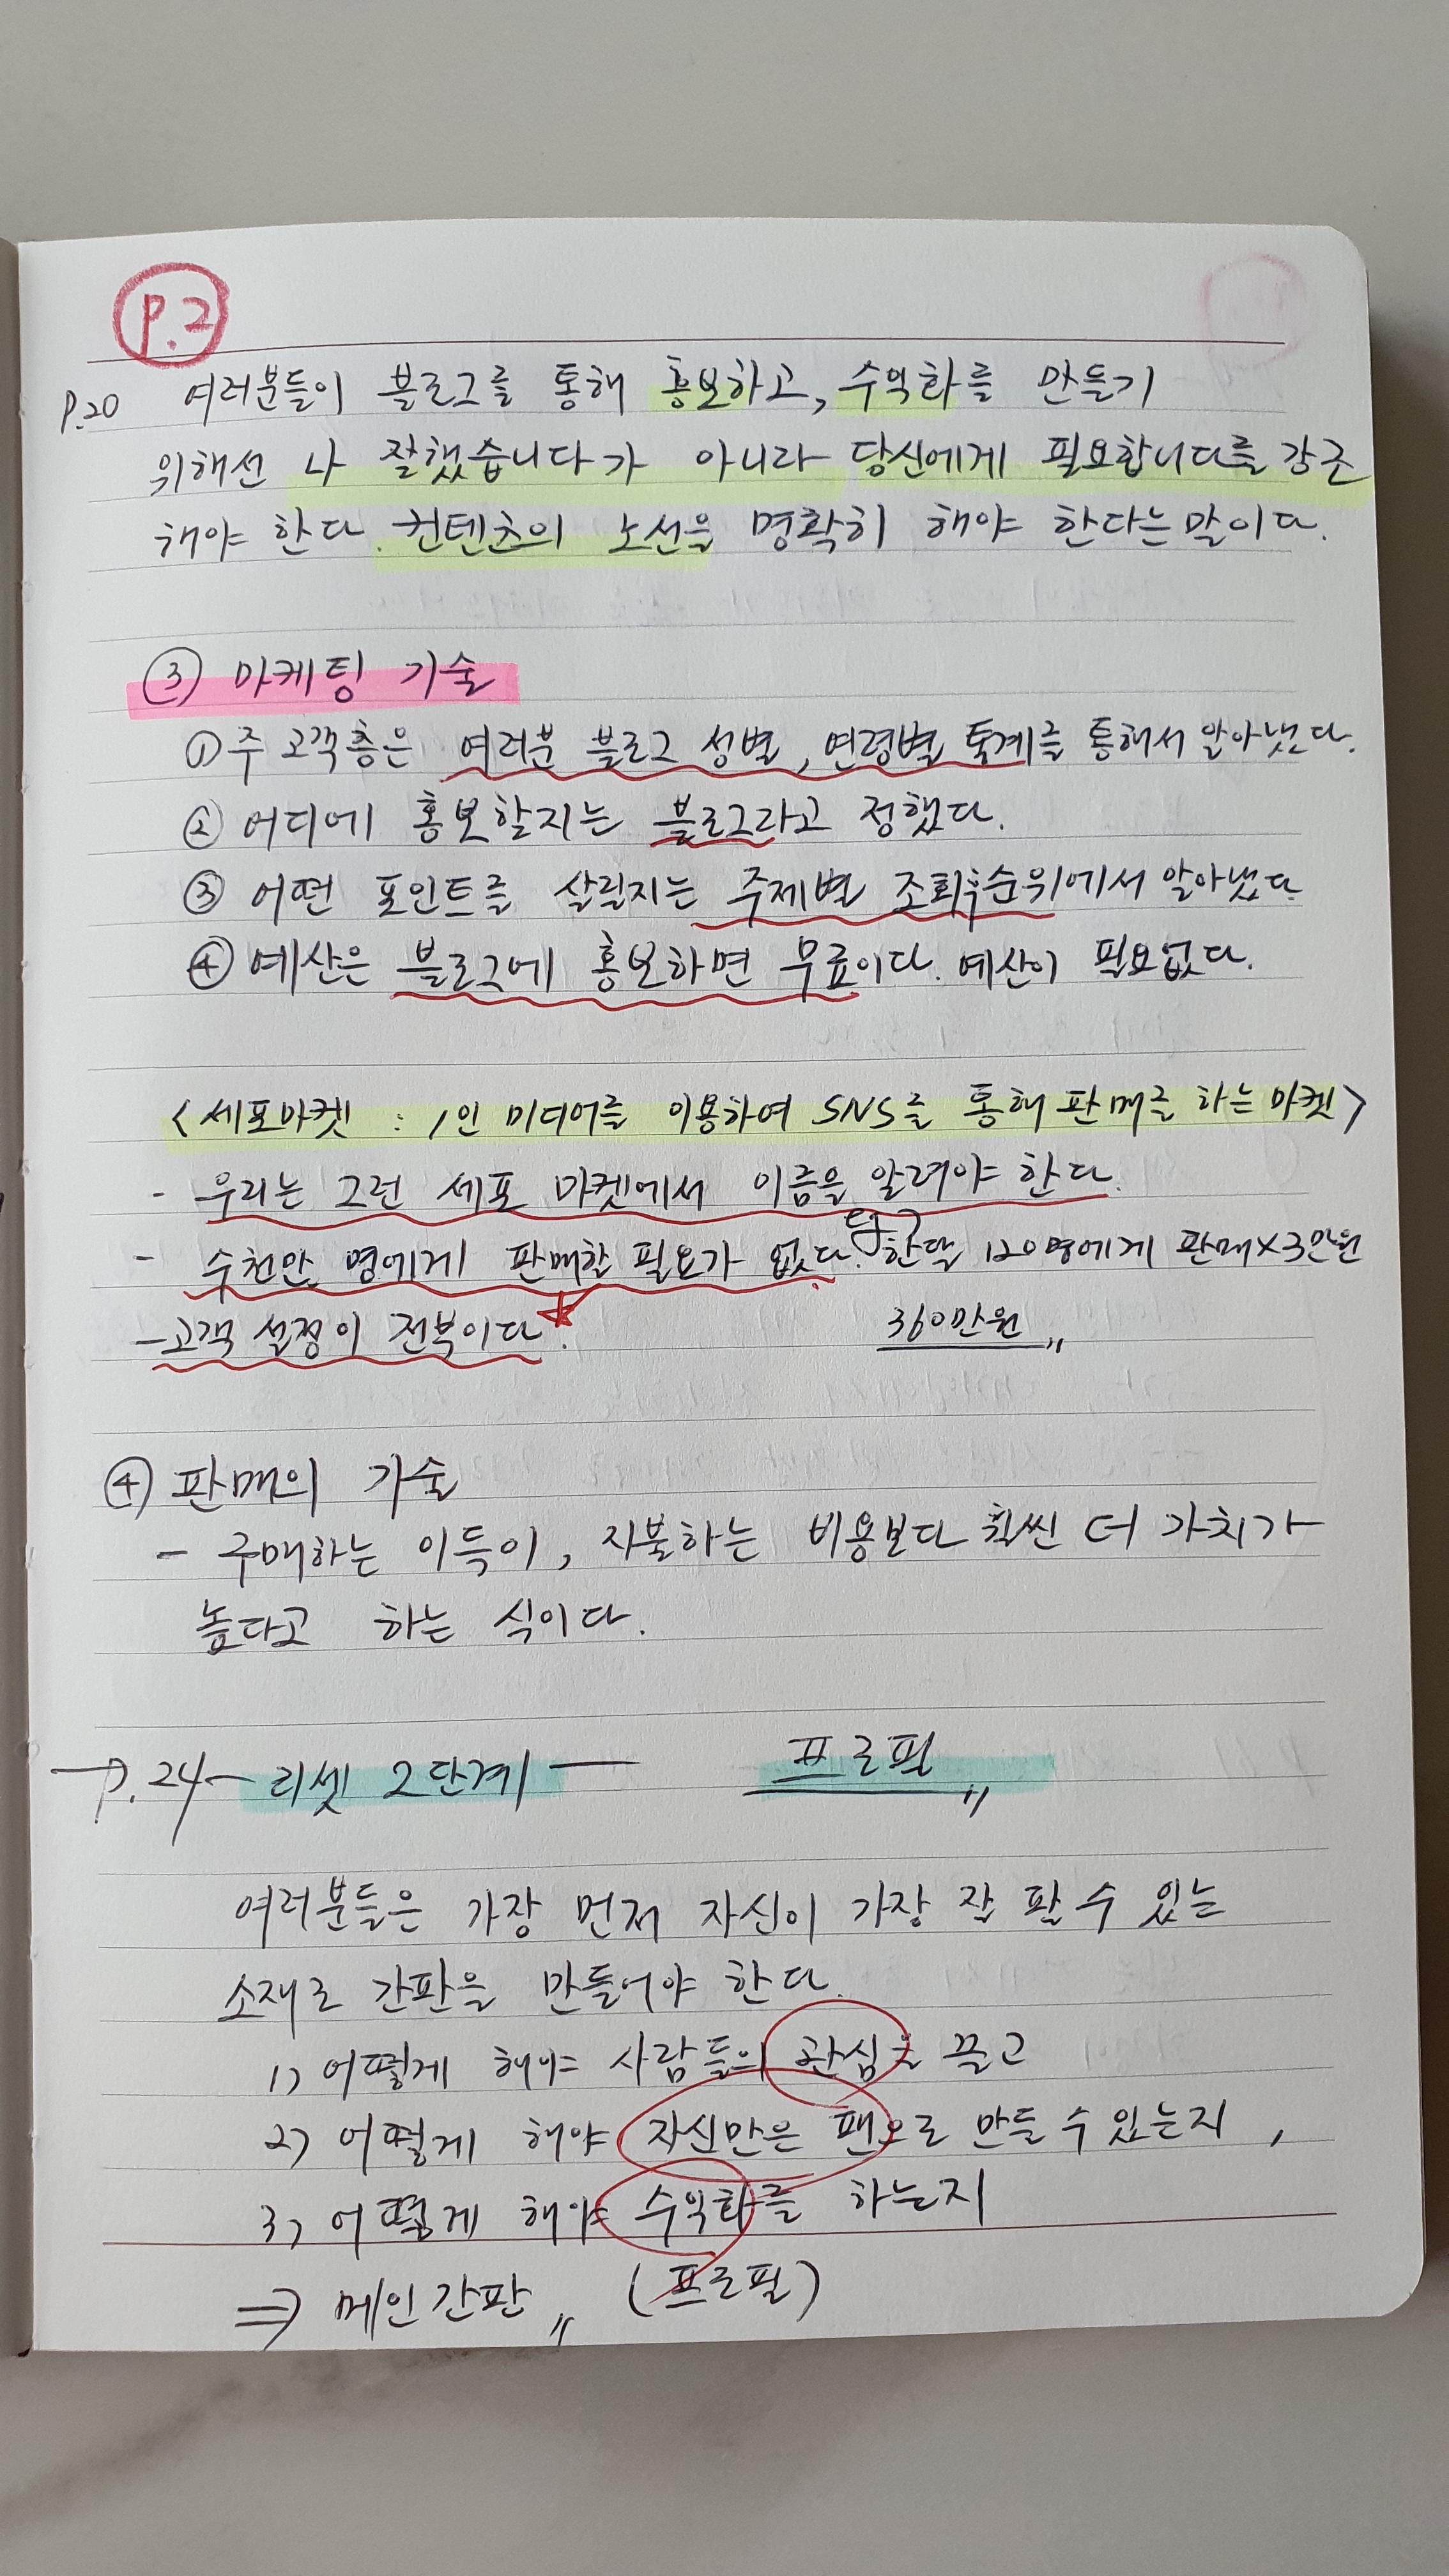 P.2
P.20 여러분들이 블로그를 통해 홍보하고, 수익화를 만들기
위해선 나 잘했습니다가 아니라 당신에게 필요합니다를 강조
해야 한다. 컨텐츠의 노선을 명확히 해야 한다는 말이다.
③ 마케팅 기술
① 주 고객층은 여러분 블로그 성별, 연령별 통계를 통해서 알아냈다.
② 어디에 홍보할지는 블로그라고 정했다.
③ 어떤 포인트를 살릴지는 주제별 조회수순위에서 알아냈다.
④ 예산은 블로그에 홍보하면 무료이다. 예산이 필요없다.
<세포마켓 : 1인 미디어를 이용하여 SNS를 통해 판매를 하는 마켓>
- 우리는 그런 세포 마켓에서 이름을 알려야 한다.
- 수천만 명에게 판매할 필요가 없다. eg) 한달 120명에게 판매×3만원
- 고객 설정이 전부이다. 360만원
④ 판매의 기술
- 구매하는 이득이, 지불하는 비용보다 훨씬 더 가치가
높다고 하는 식이다.
→ P.24 - 리셋 2단계 — 프로필
여러분들은 가장 먼저 자신이 가장 잘 팔 수 있는
소재로 간판을 만들어야 한다.
1) 어떻게 해야 사람들의 관심을 끌고
2) 어떻게 해야 자신만은 팬으로 만들 수 있는지,
3) 어떻게 해야 수익화를 하는지
⇒ 메인간판〃 (프로필)